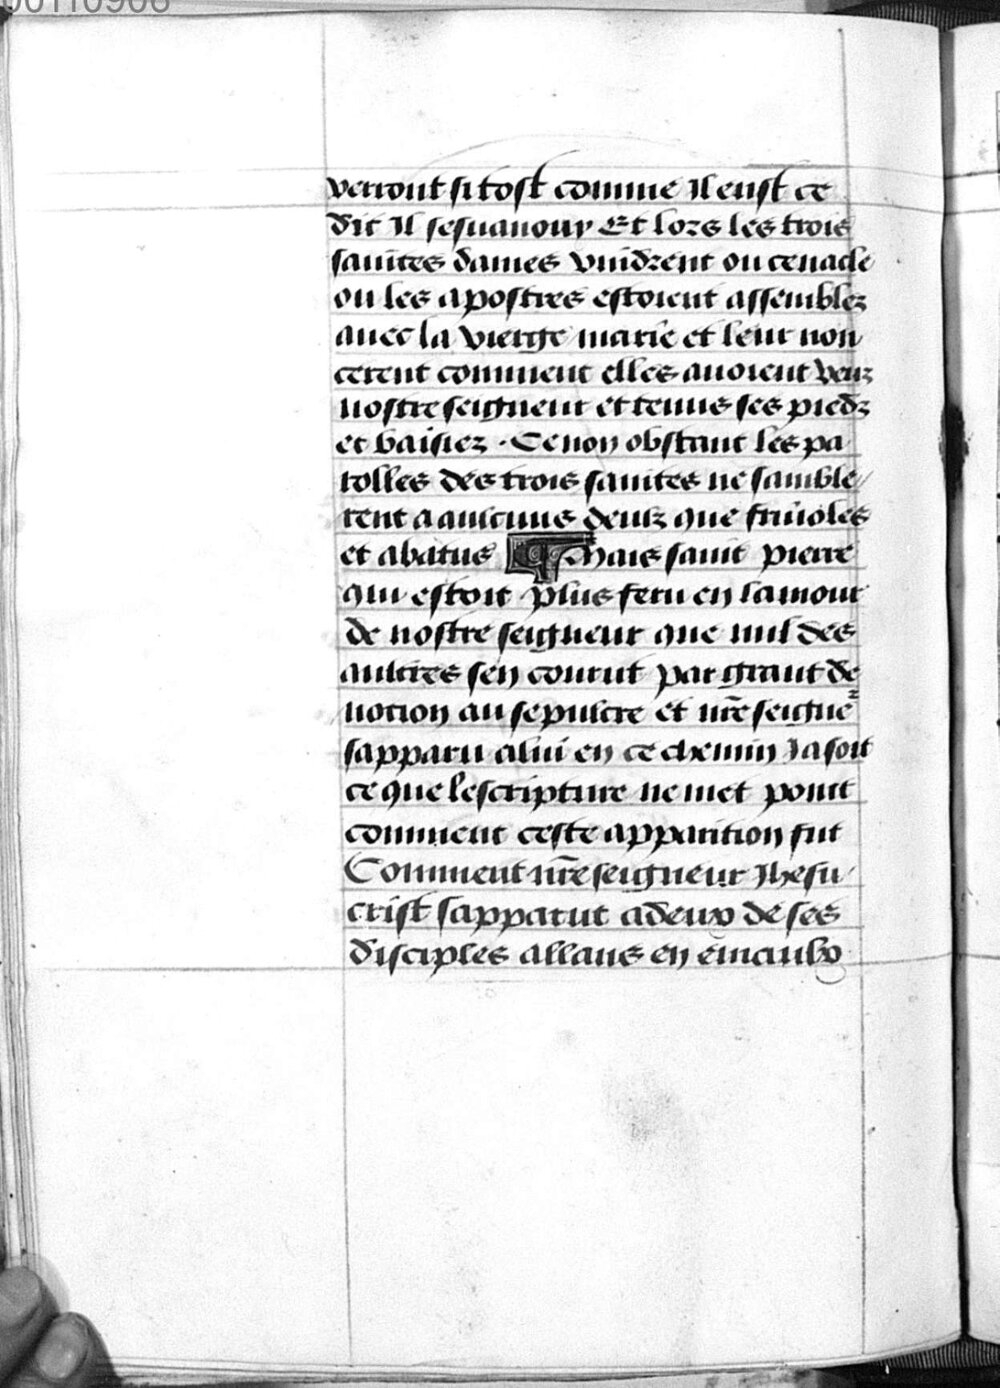 verront si tost comme Il eust ce
dit Il sesuanouy Et lors les trois
sainctes dames vuidrent ou cenacle
ou les apostres estoient assemblez
auec la vierge marie et leur non
cerent comment elles auoient veuz
nostre seigneur et tenus ses piedz
et baisiez . Ce non obstant les pa
rolles des trois sainctes ne samble
rent a aulcuns deulz que friuoles
et abatus ¶ Mais saint pierre
qui estoit plus feru en lamour
de nostre seigneur que nul des
aultres sen courut par grant de
uocion au sepulcre et nr̃e seigneᷣ
sapparu a lui en ce chemin Ja soit
ce que lescripture ne met point
comment ceste apparition fut
Comment nr̃e seigneur Jhesu
crist sapparut a deux de ses
disciples allans en emaulx